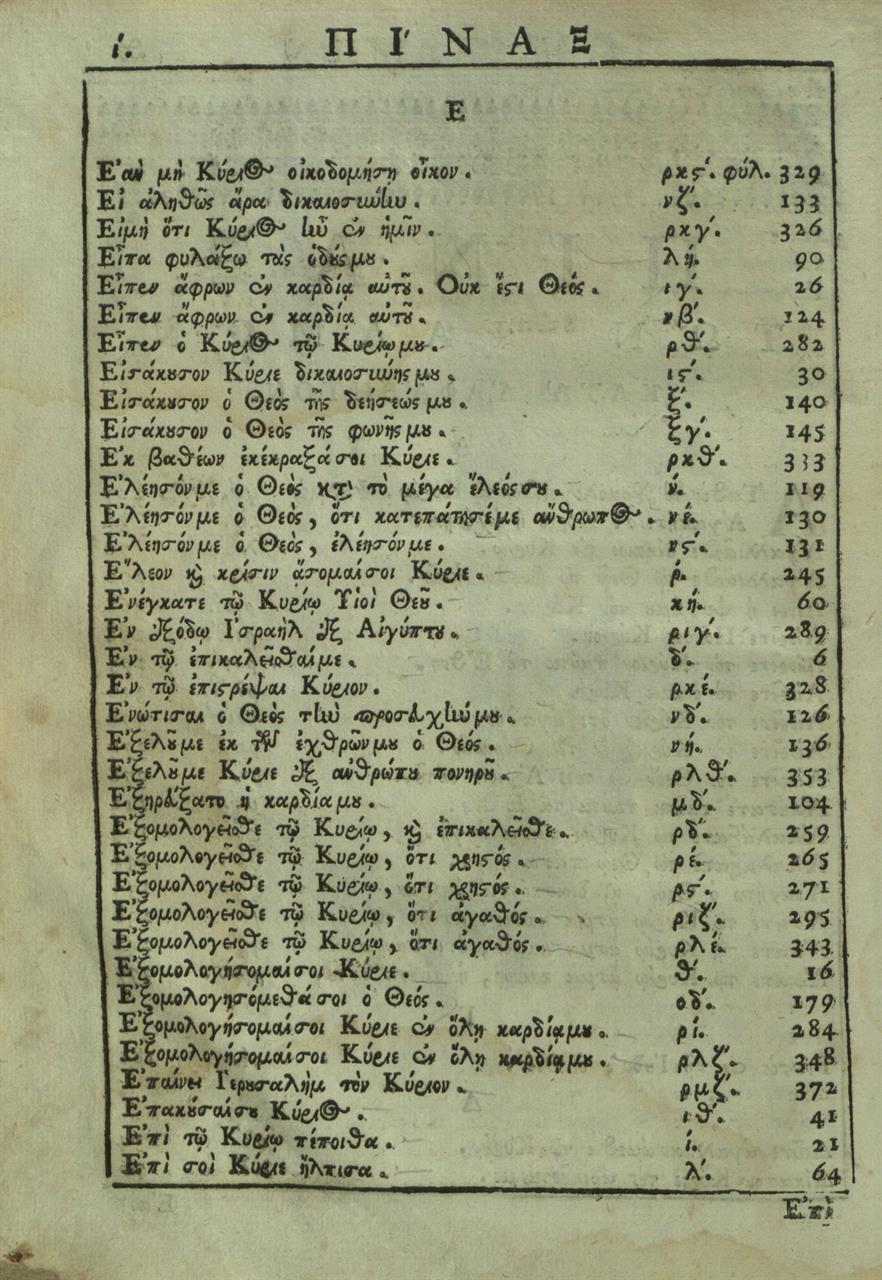 ί. ΠΙ΄ΝΑΞ
Ε
Ε᾿ὰν μὴ Κύριος οἰκοδομήση οἶκον. ρκϛ΄. φύλ. 329
Εἰ ἀληθῶς ἄρα δικαιοσύνην. νζ΄. 133
Εἰμὴ ὅτι Κύριος ἦν ἐν ἡμῖν. ρκγ΄. 326
Εἶπα φυλάξω τὰς ὁδούς μου. λή. 90
Εἶπεν ἄφρων ἐν καρδίᾳ αὐτοῦ. Οὐκ ἔστι Θεός. ιγ΄. 26
Εἶπεν ἄφρων ἐν καρδίᾳ αὐτοῦ. νβ΄. 124
Εἶπεν ὁ Κύριος τῷ Κυρίῳ μου. ρθ΄. 282
Εἰσάκουσον Κύριε δικαιοσύνης μου. ιϛ΄. 30
Εἰσάκουσον ὁ Θεὸς τῆς δεήσεώς μου. ξ΄. 140
Εἰσάκουσον ὁ Θεὸς τῆς φωνῆς μου. ξγ΄. 145
Ε᾿κ βαθέων ἐκέκραξά σοι Κύριε. ρκθ΄. 333
Ε᾿λέησόν με ὁ Θεὸς κτ̀ τὸ μέγα ἔλεός σου. ν΄. 119
Ε᾿λέησόν με ὁ Θεὸς, ὅτι κατεπάτησέ με ἄνθρωπος. νέ. 130
Ε᾿λέησόν με ὁ Θεὸς, ἐλέησόν με. νϛ΄. 131
Ε῎λεον καὶ κρίσιν ᾄσομαί σοι Κύριε. ρ΄. 245
Ε᾿νέγκατε τῷ Κυρίῳ Υἱοὶ Θεοῦ. κή. 60
Ε᾿ν ἐξόδῳ Ι᾿σραὴλ ἐξ Αἰγύπτου. ριγ΄. 289
Ε᾿ν τῷ ἐπικαλεῖσθαί με. δ΄. 6
Ε᾿ν τῷ ἐπιστρέψαι Κύριον. ρκέ. 328
Ε᾿νώτισαι ὁ Θεὸς τὴν προσευχήν μου. νδ΄. 126
Ε᾿ξελοῦ με ἐκ τῶν ἐχθρῶν μου ὁ Θεός. νή. 136
Ε᾿ξελοῦ με Κύριε ἐξ ἀνθρώπου πονηροῦ. ρλθ΄. 353
Ε᾿ξηρεύξατο ἡ καρδία μου. μδ΄. 104
Ε᾿ξομολογεῖσθε τῷ Κυρίῳ, καὶ ἐπικαλεῖσθε. ρδ΄. 259
Ε᾿ξομολογεῖσθε τῷ Κυρίῳ, ὅτι χρηστός. ρέ. 265
Ε᾿ξομολογεῖσθε τῷ Κυρίῳ, ὅτι χρηστός. ρϛ΄. 271
Ε᾿ξομολογεῖσθε τῷ Κυρίῳ, ὅτι ἀγαθός. ριζ΄. 295
Ε᾿ξομολογεῖσθε τῷ Κυρίῳ, ὅτι ἀγαθός. ρλέ. 343
Ε᾿ξομολογήσομαί σοι Κύριε. θ΄. 16
Ε᾿ξομολογησόμεθά σοι ὁ Θεός. οδ΄. 179
Ε᾿ξομολογήσομαί σοι Κύριε ἐν ὅλῃ καρδίᾳ μου. ρί. 284
Ε᾿ξομολογήσομαί σοι Κύριε ἐν ὅλῃ καρδίᾳ μου. ρλζ΄. 348
Ε᾿παίνει Γερουσαλὴμ τὸν Κύριον. ρμζ΄. 372
Ε᾿πακούσαί σου Κύριος. ιθ΄. 41
Ε᾿πὶ τῷ Κυρίῳ πέποιθα. ί. 21
Ε᾿πὶ σοὶ Κύριε ἤλπισα. λ΄. 64
Ε᾿πὶ